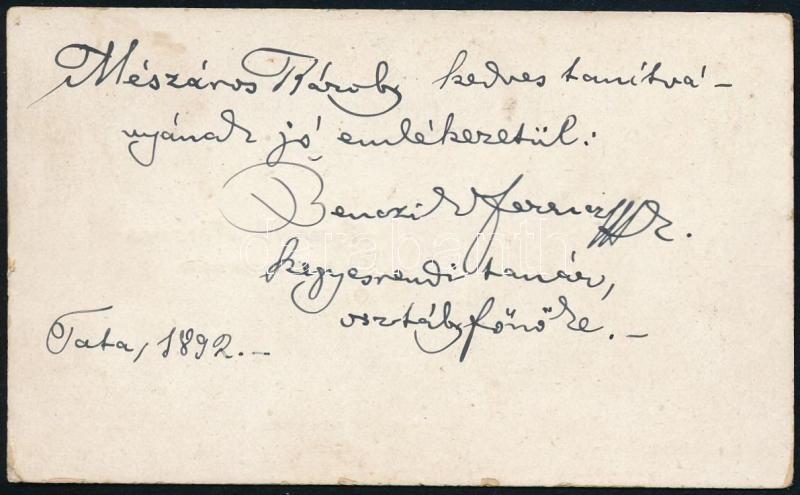 Mészáros Károly kedves tanítvá-
nyának jó emlékezetül:
Benczik Ferencz
kegyesrendi tanár,
osztályfőnöke.—
Tata, 1892.—